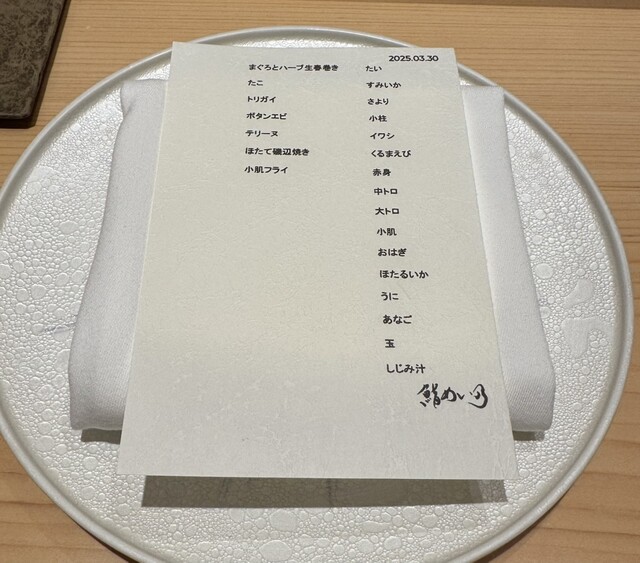 2025.03.30
まぐろとハーブ生春巻き
たこ
トリガイ
ボタンエビ
テリーヌ
ほたて磯辺焼き
小肌フライ
たい
すみいか
さより
小柱
イワシ
くるまえび
赤身
中トロ
大トロ
小肌
おはぎ
ほたるいか
うに
あなご
玉
しじみ汁